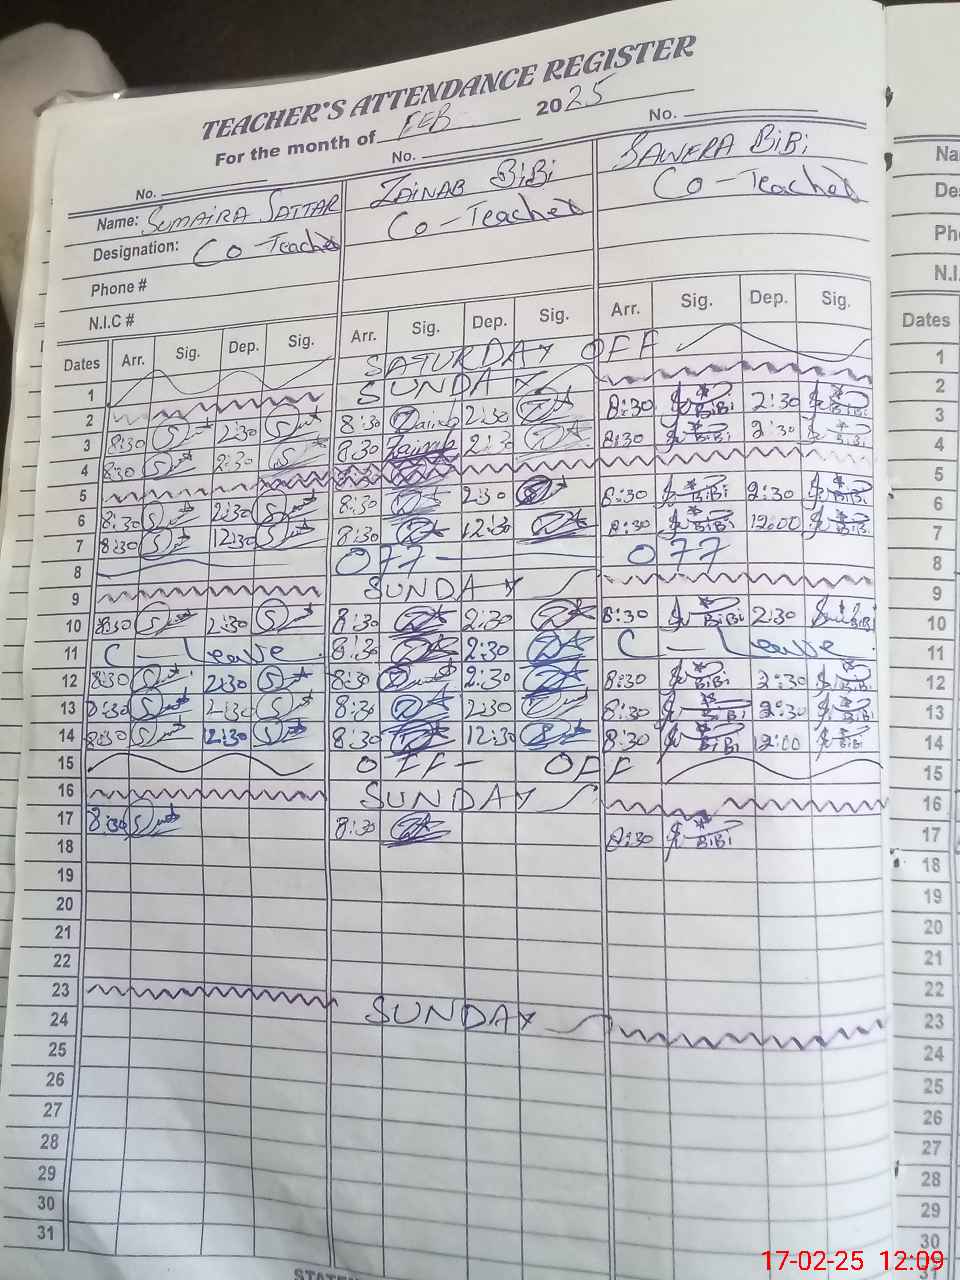 TEACHER'S ATTENDANCE REGISTER
For the month of FEB 2025
No. No. No.
Name: SUMAIRA SATTAR ZAINAB BiBi SAWERA BiBi
Designation: Co-Teacher Co-Teacher Co-Teacher
Phone #
N.I.C #
Dates Arr. Sig. Dep. Sig. Arr. Sig. Dep. Sig. Arr. Sig. Dep. Sig.
1 SATURDAY OFF
2 SUNDAY
3 8:30 2:30 8:30 Zainab 2:30 8:30 BiBi 2:30 BiBi
4 8:30 2:30 8:30 Zainab 2:30 8:30 BiBi 2:30 BiBi
5
6 8:30 2:30 8:30 2:30 8:30 BiBi 2:30 BiBi
7 8:30 12:30 8:30 12:30 8:30 BiBi 12:00 BiBi
8 OFF OFF
9 SUNDAY
10 8:30 2:30 8:30 2:30 8:30 BiBi 2:30 BiBi
11 C - Leave 8:30 2:30 C - Leave
12 8:30 2:30 8:30 2:30 8:30 BiBi 2:30 BiBi
13 8:30 2:30 8:30 2:30 8:30 BiBi 2:30 BiBi
14 8:30 12:30 8:30 12:30 8:30 BiBi 12:00 BiBi
15 OFF - OFF
16 SUNDAY
17 8:30 8:30 8:30 BiBi
18
19
20
21
22
23 SUNDAY
24
25
26
27
28
29
30
31
Dates
1
2
3
4
5
6
7
8
9
10
11
12
13
14
15
16
17
18
19
20
21
22
23
24
25
26
27
28
29
30
31
17-02-25 12:09